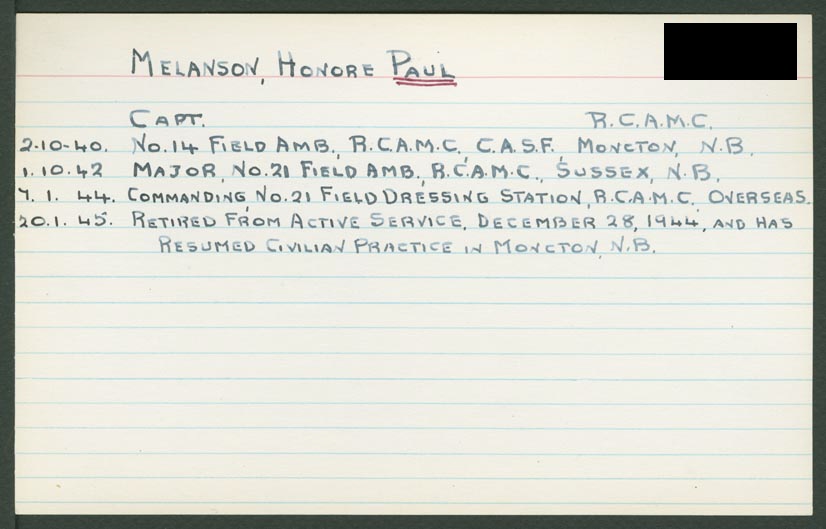 MELANSON, HONORE PAUL
CAPT. R.C.A.M.C.
2-10-40. No.14 FIELD AMB., R.C.A.M.C., C.A.S.F., MONCTON, N.B.
1.10.42 MAJOR, No.21 FIELD AMB., R.C.A.M.C., SUSSEX, N.B.
7.1.44. COMMANDING, No.21 FIELD DRESSING STATION, R.C.A.M.C. OVERSEAS.
20.1.45. RETIRED FROM ACTIVE SERVICE, DECEMBER 28, 1944, AND HAS
RESUMED CIVILIAN PRACTICE IN MONCTON, N.B.